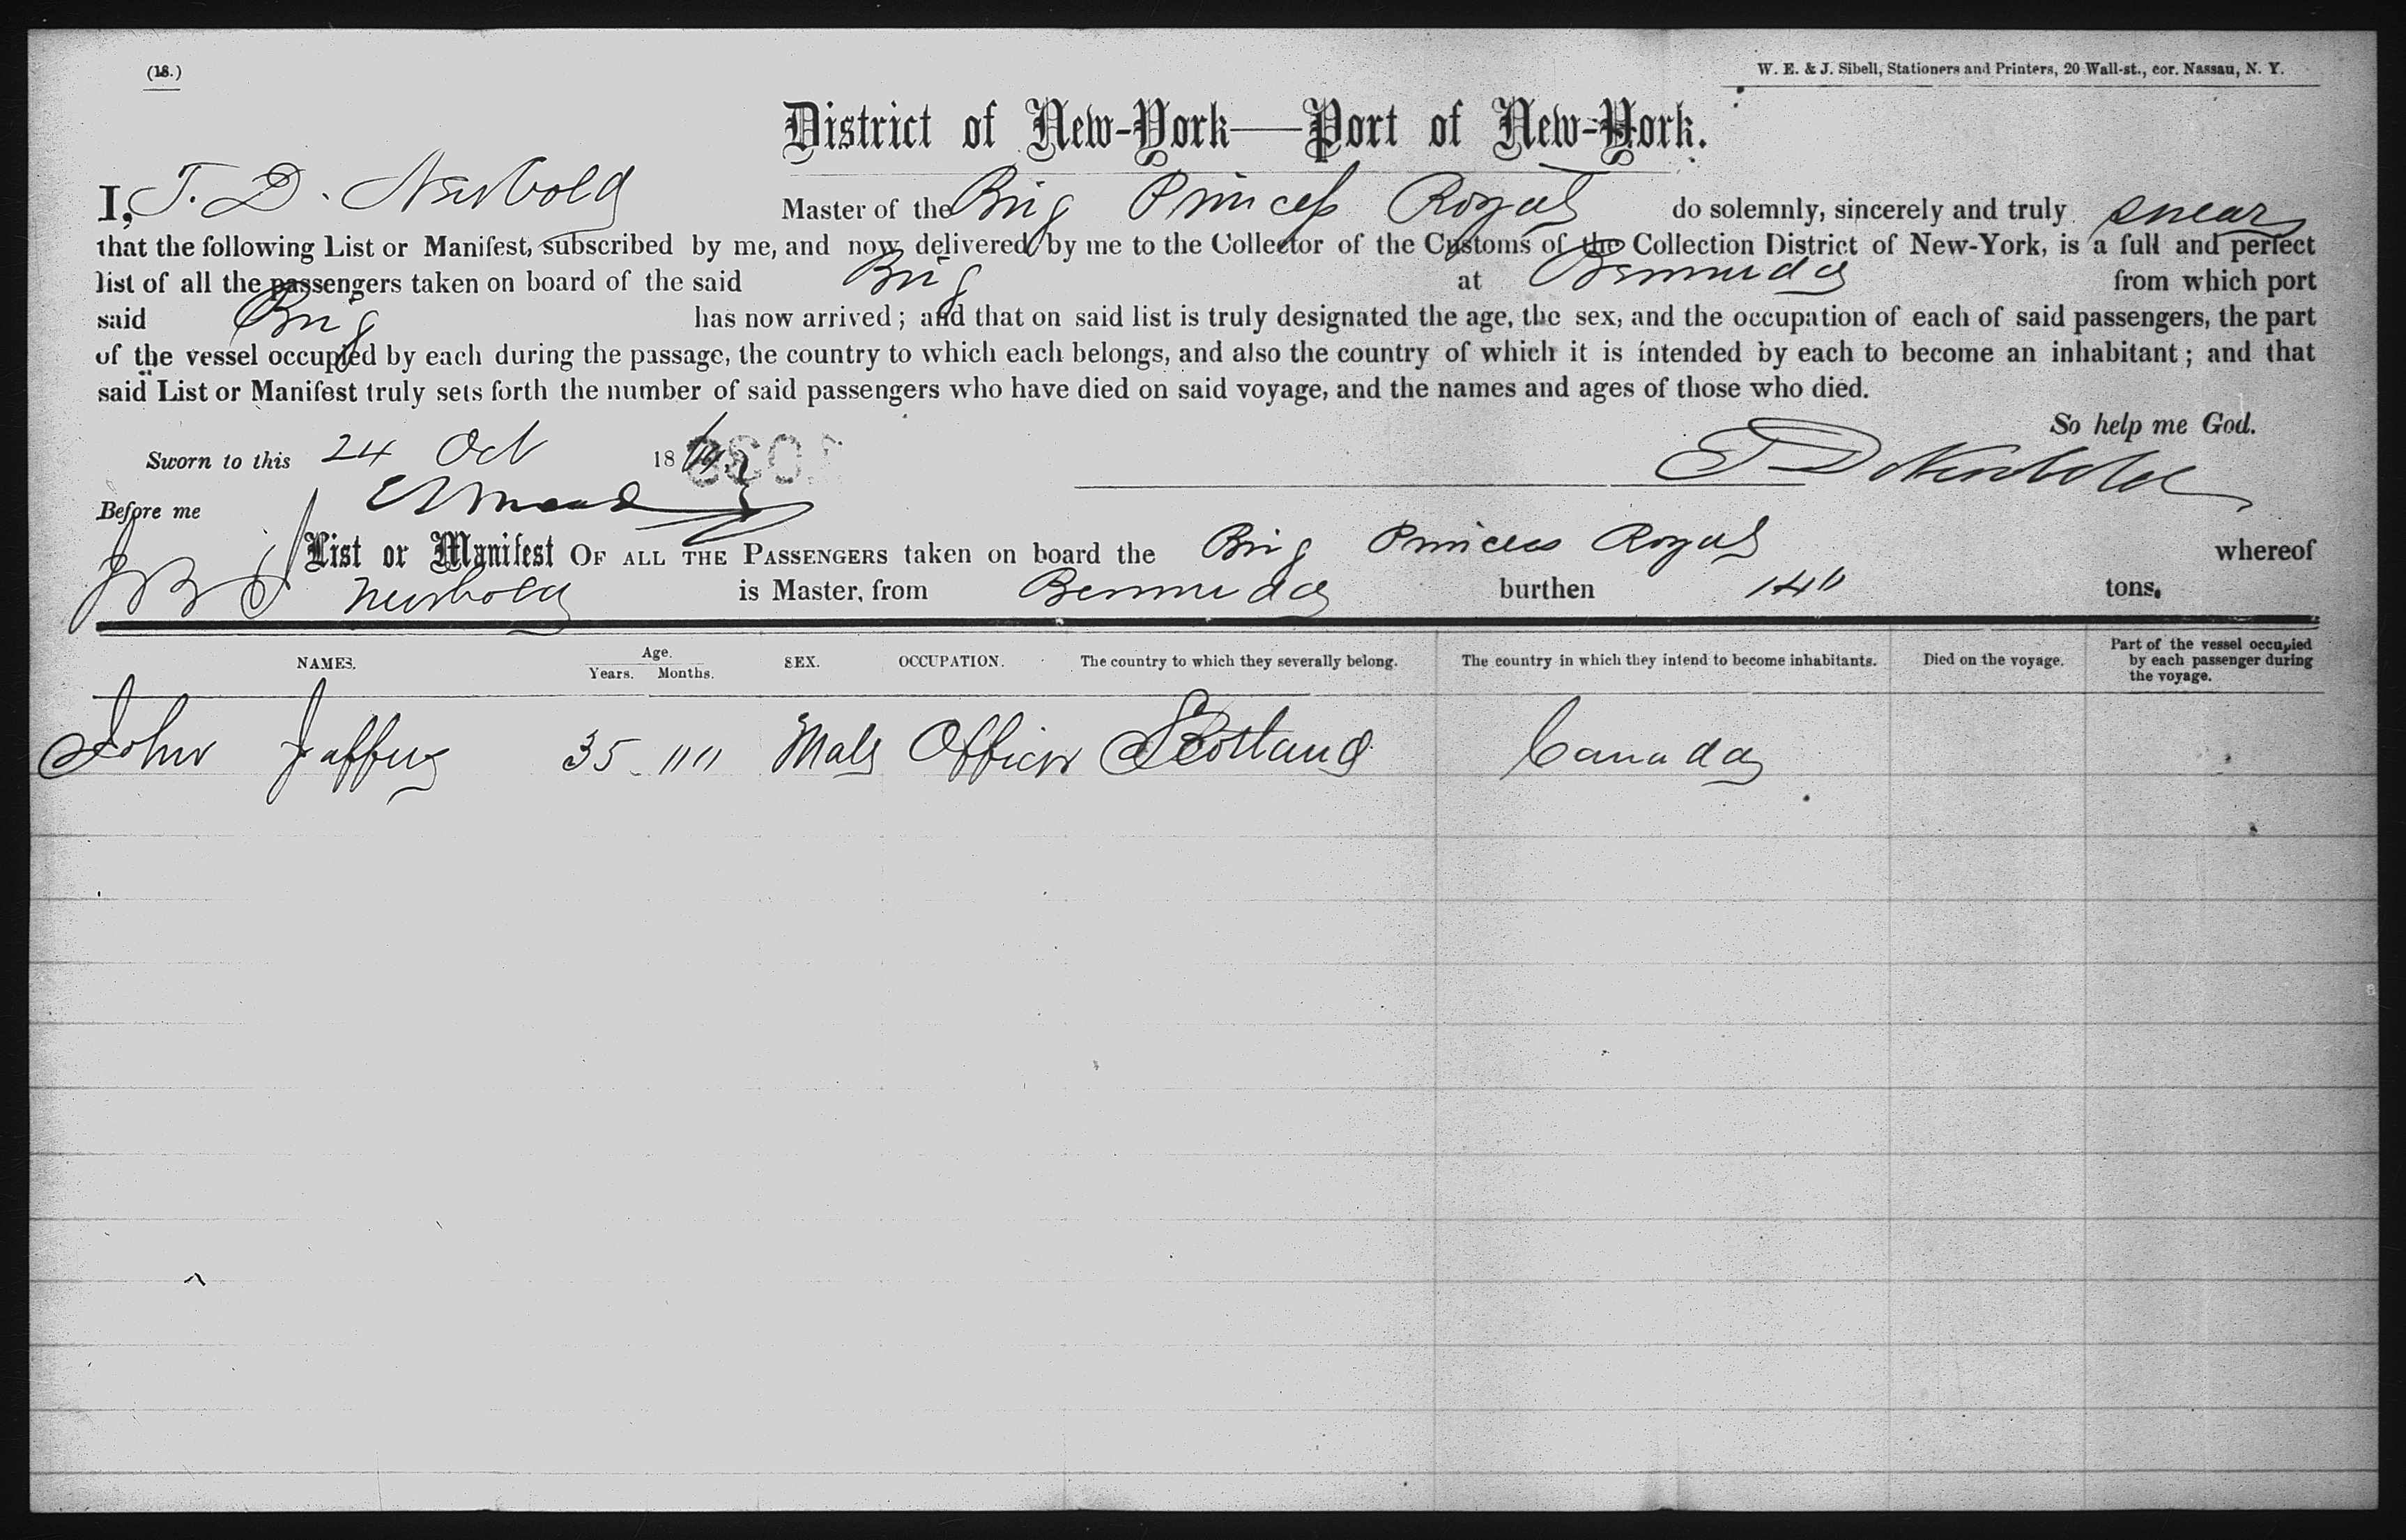 (18.)
W. E. & J. Sibell, Stationers and Printers, 20 Wall-st., cor. Nassau, N. Y.
District of New-York—Port of New-York.
I, T. D. Newbold Master of the Brig Princess Royal do solemnly, sincerely and truly swear
that the following List or Manifest, subscribed by me, and now delivered by me to the Collector of the Customs of the Collection District of New-York, is a full and perfect
list of all the passengers taken on board of the said Brig at Bermuda from which port
said Brig has now arrived; and that on said list is truly designated the age, the sex, and the occupation of each of said passengers, the part
of the vessel occupied by each during the passage, the country to which each belongs, and also the country of which it is intended by each to become an inhabitant; and that
said List or Manifest truly sets forth the number of said passengers who have died on said voyage, and the names and ages of those who died.
So help me God.
Sworn to this 24 Oct 18
T D Newbold
Before me
List or Manifest OF ALL THE PASSENGERS taken on board the Brig Princess Royal whereof
Newbold is Master, from Bermuda burthen tons.
NAMES. Age. Years. Months. SEX. OCCUPATION. The country to which they severally belong. The country in which they intend to become inhabitants. Died on the voyage. Part of the vessel occupied by each passenger during the voyage.
John 35 Male Officer Scotland Canada